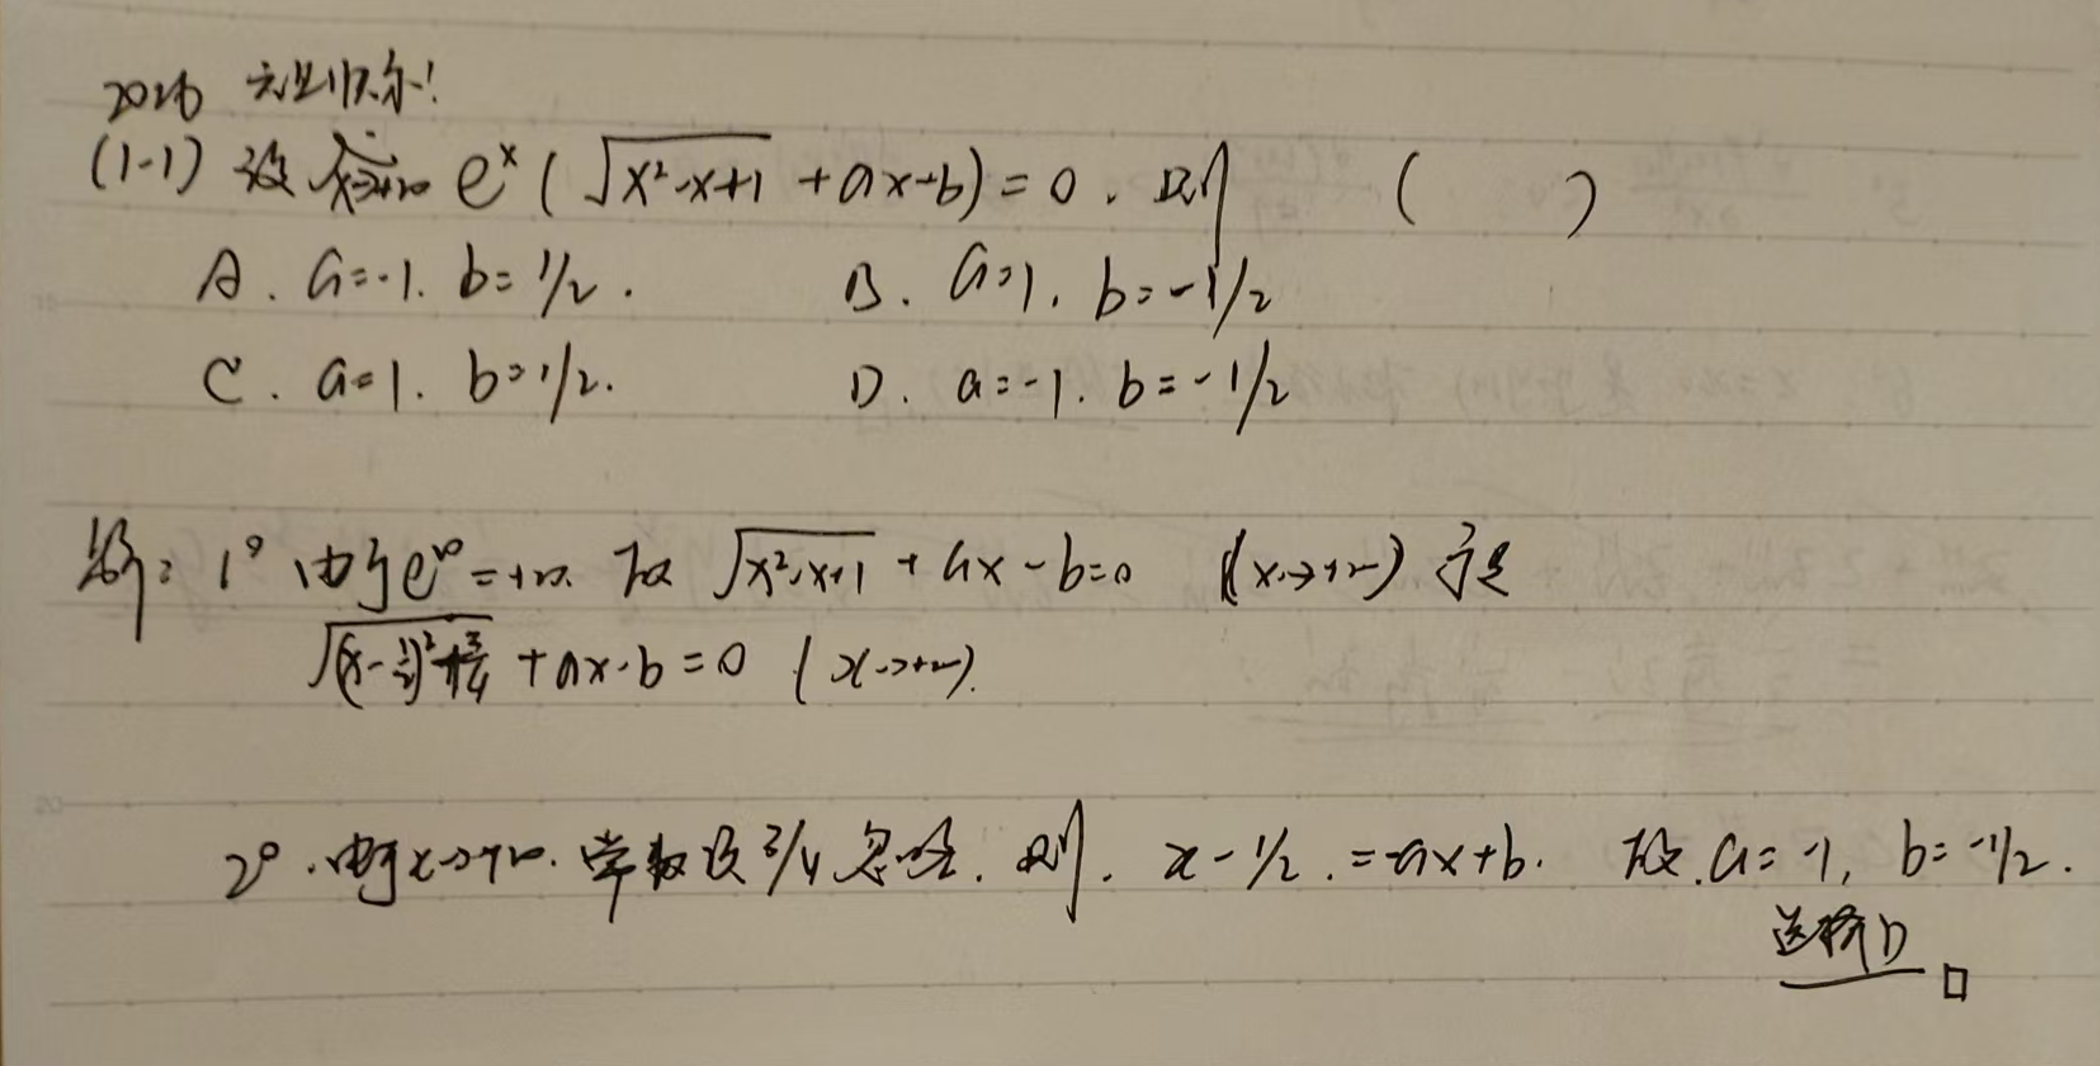 2026
(1-1) 设 lim x→+∞ e^x (√(x²-x+1) + ax-b) = 0. 则 ( )
A. a=-1. b=1/2. B. a=1. b=-1/2
C. a=1. b=1/2. D. a=-1. b=-1/2
解: 1° 由于e^∞=+∞. 故 √(x²-x+1) + ax-b=0 (x→+∞) 于是
√((x-1/2)²+3/4) + ax-b=0 (x→+∞).
2°. 由于x→+∞. 常数项3/4忽略. 则. x-1/2.=-ax+b. 故.a=-1, b=-1/2.
选择D □